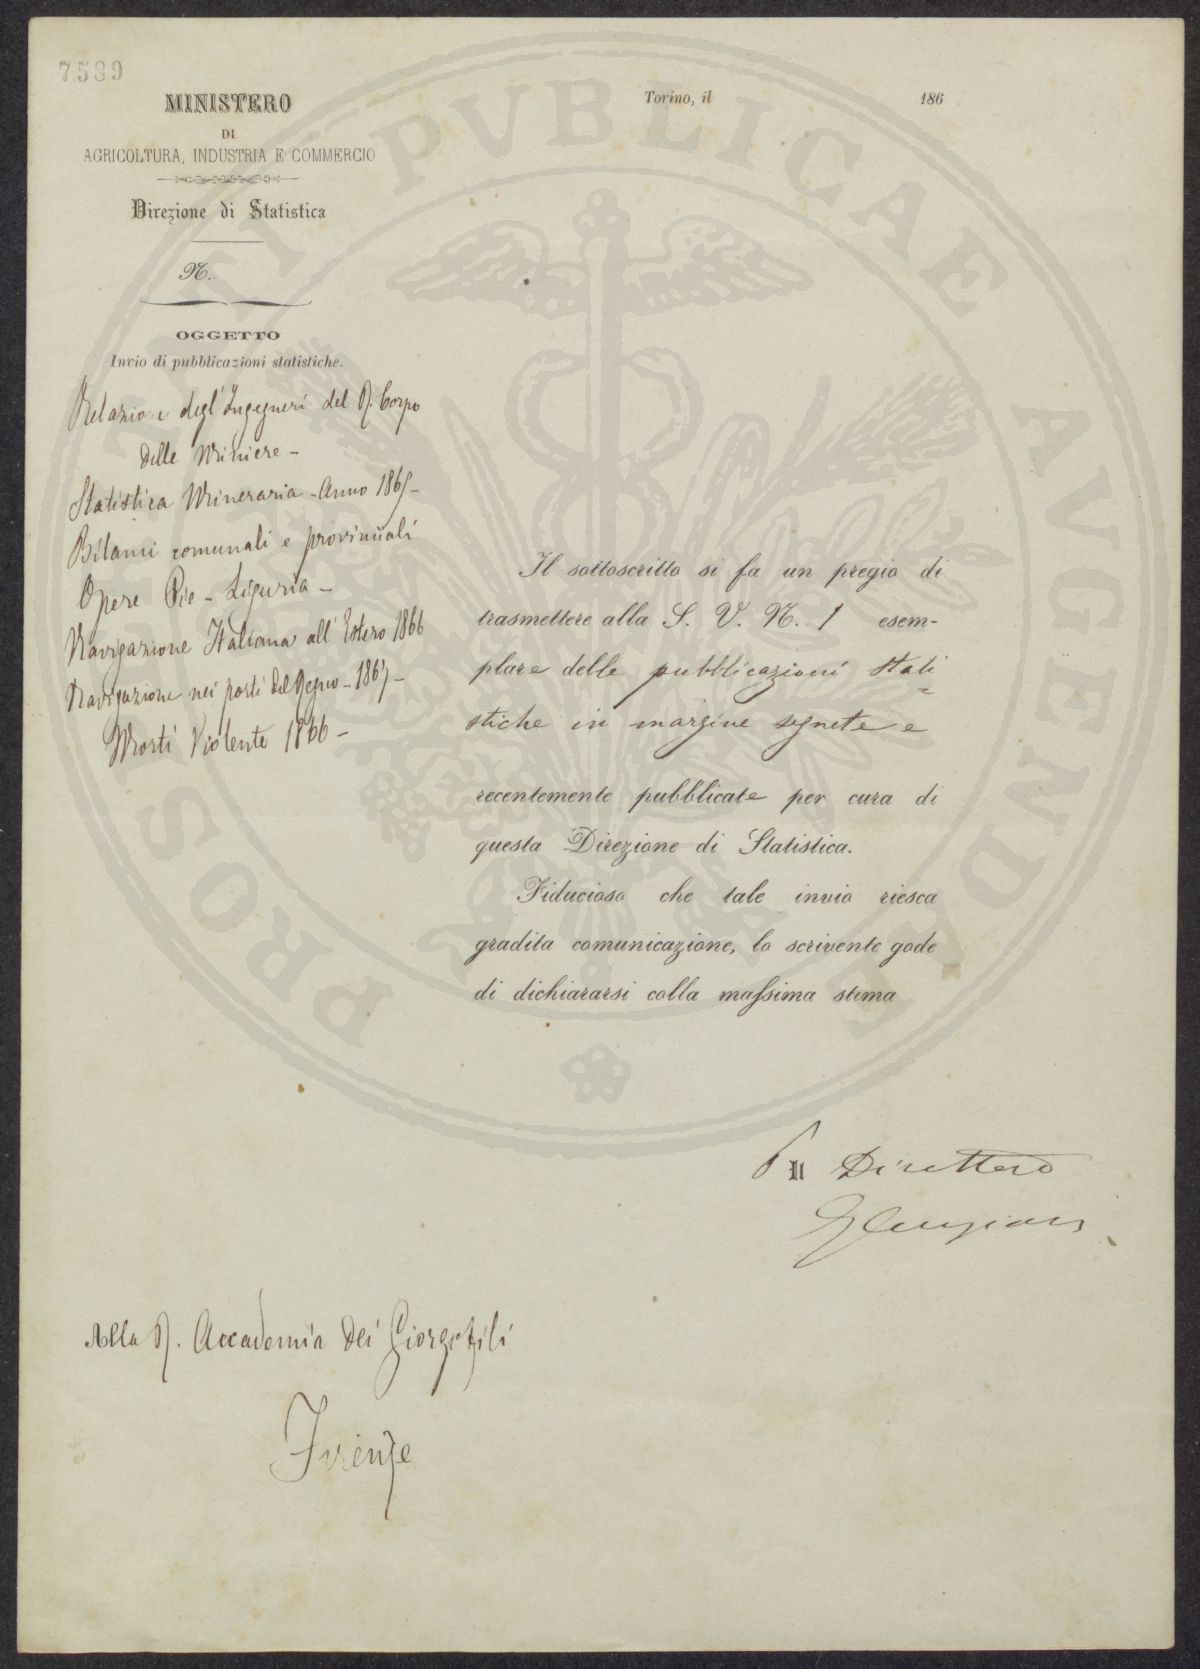 7539
MINISTERO
DI
AGRICOLTURA, INDUSTRIA E COMMERCIO
Direzione di Statistica
N.
OGGETTO
Invio di pubblicazioni statistiche.
Relazioni degl'Ingegneri del R. Corpo
delle Miniere -
Statistica Mineraria - Anno 1865 -
Bilanci comunali e provinciali
Opere Pie - Liguria -
Navigazione Italiana all'Estero 1866
Navigazione nei porti del Regno - 1867 -
Morti Violente 1866 -
Torino, il 186
Il sottoscritto si fa un pregio di
trasmettere alla S. V. N. 1 esem-
plare delle pubblicazioni stati
stiche in margine segnate e
recentemente pubblicate per cura di
questa Direzione di Statistica.
Fiducioso che tale invio riesca
gradita comunicazione, lo scrivente gode
di dichiararsi colla massima stima
Il Direttore
Alla R. Accademia dei Giorgofili
Firenze
PROSPERITATI PVBLICAE AVGENDAE